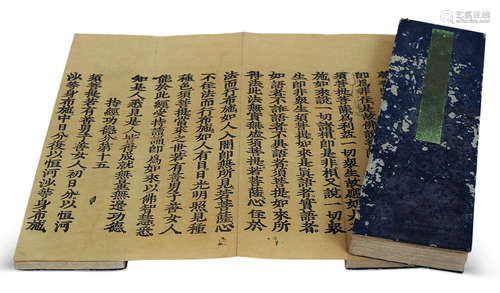 即爲非住是故佛
須菩提菩薩爲利益一切眾生故應如
施如來說一切諸相即是非相又說一切眾
生即非眾生須菩提如來是真語者實語者
如語者不誑語者不異語者須菩提如來所
得法此法無實無虛須菩提若菩薩心住於
法而行布施如人入闇即無所見若菩薩心
不住法而行布施如人有目日光明照見種
種色須菩提當來之世若有善男子善女人
能於此經受持讀誦即爲如來以佛智慧悉
知是人悉見是人皆得成就無量無邊功德
持經功德分第十五
須菩提若有善男子善女人初日分以恒河
沙等身布施中日分復以恒河沙等身布施